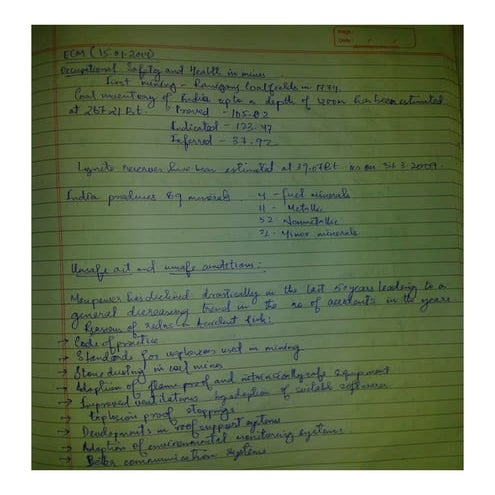 Page :
Date :
ECM (15.01.2014)
Occupational Safety and Health in mines
First mining - Raniganj Coalfields in 1774.
Coal inventory of India upto a depth of 1200m has been estimated
at 267.21 Bt. Proved - 105.82
Indicated - 123.47
Inferred - 37.92
Lignite reserves have been estimated at 39.07Bt as on 31.3.2009.
India produces 89 minerals 4 - fuel minerals
11 - Metallic
52 Nonmetallic
22 - Minor minerals
Unsafe act and unsafe conditions :
Manpower has declined drastically in the last 5 years leading to a
general decreasing trend in the no of accidents in the years
Reasons of reduc n Accident
→ Code of practice
→ Standards for explosives used in mining
→ Stone dusting in coal mines
→ Adoption of flame proof and intrinsically safe equipment
→ Improved ventilations by adoption of suitable softwares
→ Explosion proof stoppings
→ Developments in roof support systems
→ Adoption of environmental monitoring systems
→ Better communication systems